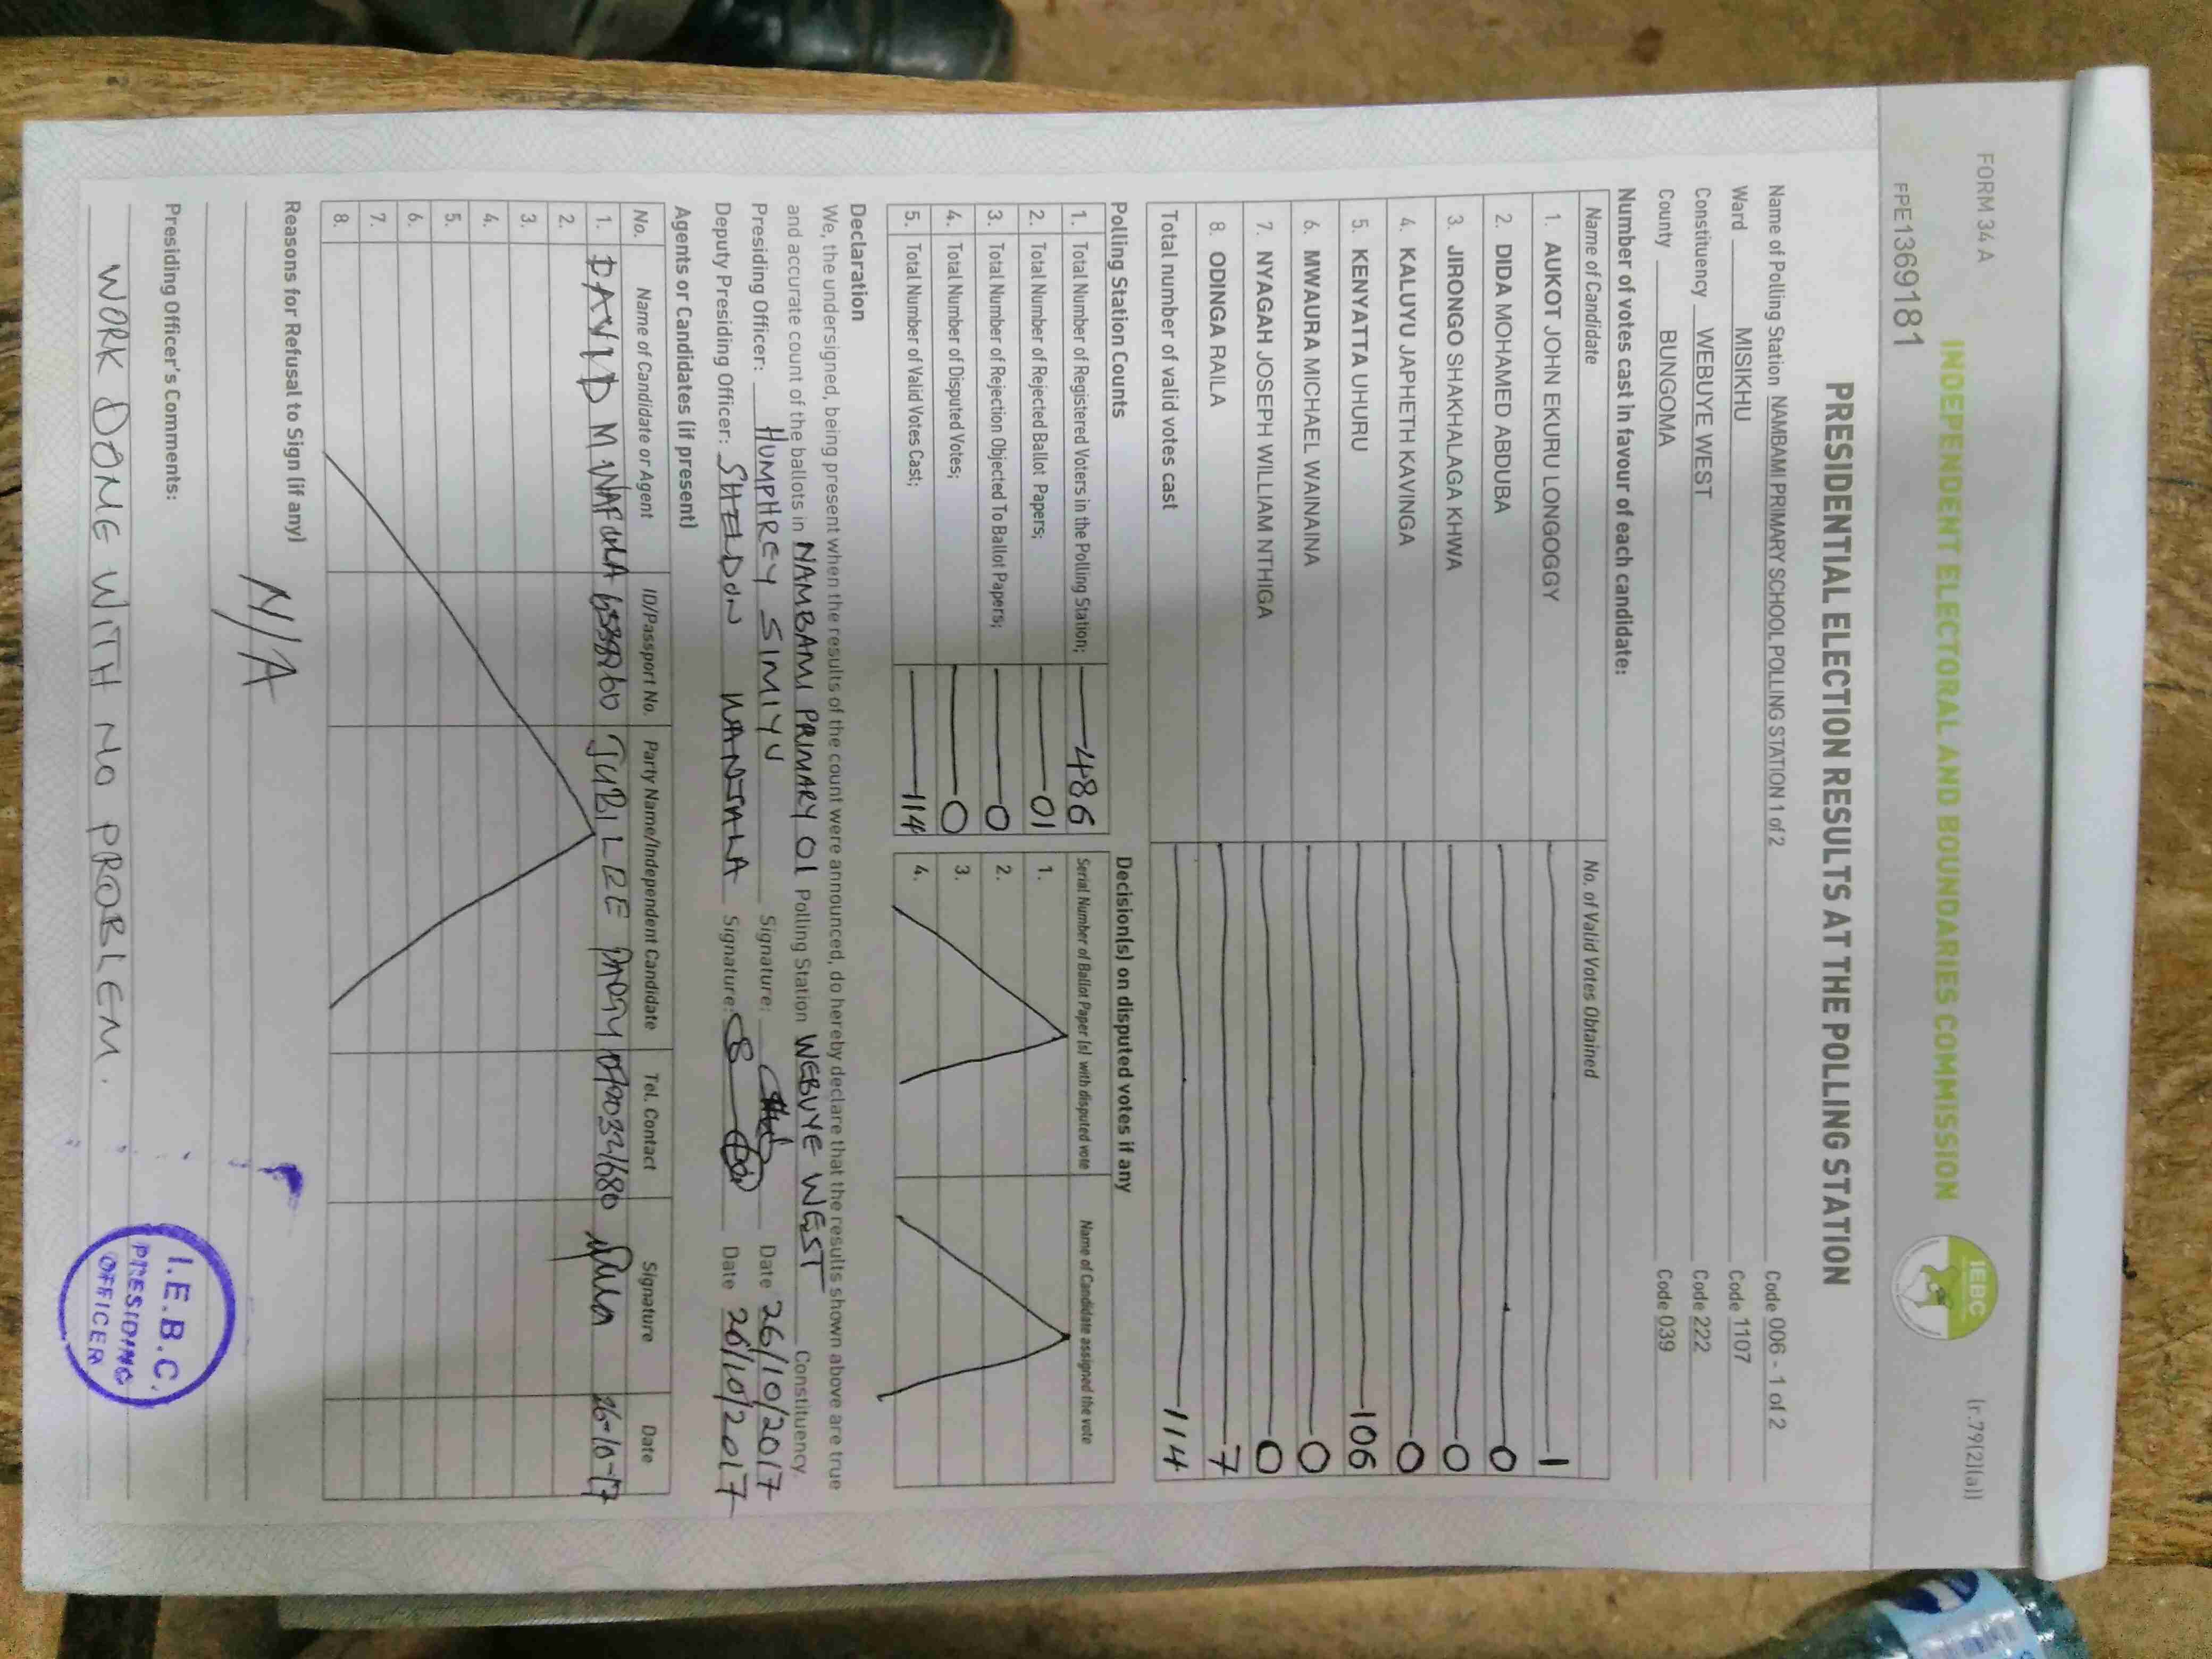 FORM 34 A
(r.79(2)(a))
INDEPENDENT ELECTORAL AND BOUNDARIES COMMISSION
IEBC
FPE1369181
PRESIDENTIAL ELECTION RESULTS AT THE POLLING STATION
Name of Polling Station NAMBAMI PRIMARY SCHOOL POLLING STATION 1 of 2 Code 006 - 1 of 2
Ward MISIKHU Code 1107
Constituency WEBUYE WEST Code 222
County BUNGOMA Code 039
Number of votes cast in favour of each candidate:
Name of Candidate No. of Valid Votes Obtained
1. AUKOT JOHN EKURU LONGOGGY 1
2. DIDA MOHAMED ABDUBA 0
3. JIRONGO SHAKHALAGA KHWA 0
4. KALUYU JAPHETH KAVINGA 0
5. KENYATTA UHURU 106
6. MWAURA MICHAEL WAINAINA 0
7. NYAGAH JOSEPH WILLIAM NTHIGA 0
8. ODINGA RAILA 7
Total number of valid votes cast 114
Polling Station Counts
1. Total Number of Registered Voters in the Polling Station; 486
2. Total Number of Rejected Ballot Papers; 01
3. Total Number of Rejection Objected To Ballot Papers; 0
4. Total Number of Disputed Votes; 0
5. Total Number of Valid Votes Cast; 114
Decision(s) on disputed votes if any
Serial Number of Ballot Paper (s) with disputed vote Name of Candidate assigned the vote
1.
2.
3.
4.
Declaration
We, the undersigned, being present when the results of the count were announced, do hereby declare that the results shown above are true
and accurate count of the ballots in NAMBAMI PRIMARY 01 Polling Station WEBUYE WEST Constituency
Presiding Officer: HUMPHREY SIMIYU Signature: Date 26/10/2017
Deputy Presiding Officer: SHELDON WANJALA Signature: Date 26/10/2017
Agents or Candidates (if present)
No. Name of Candidate or Agent ID/Passport No. Party Name/Independent Candidate Tel. Contact Signature Date
1. DAVID M WAFULA JUBILEE PARTY 26-10-17
2.
3.
4.
5.
6.
7.
8.
Reasons for Refusal to Sign (if any)
N/A
Presiding Officer's Comments:
WORK DONE WITH NO PROBLEM.
I.E.B.C.
PRESIDING
OFFICER